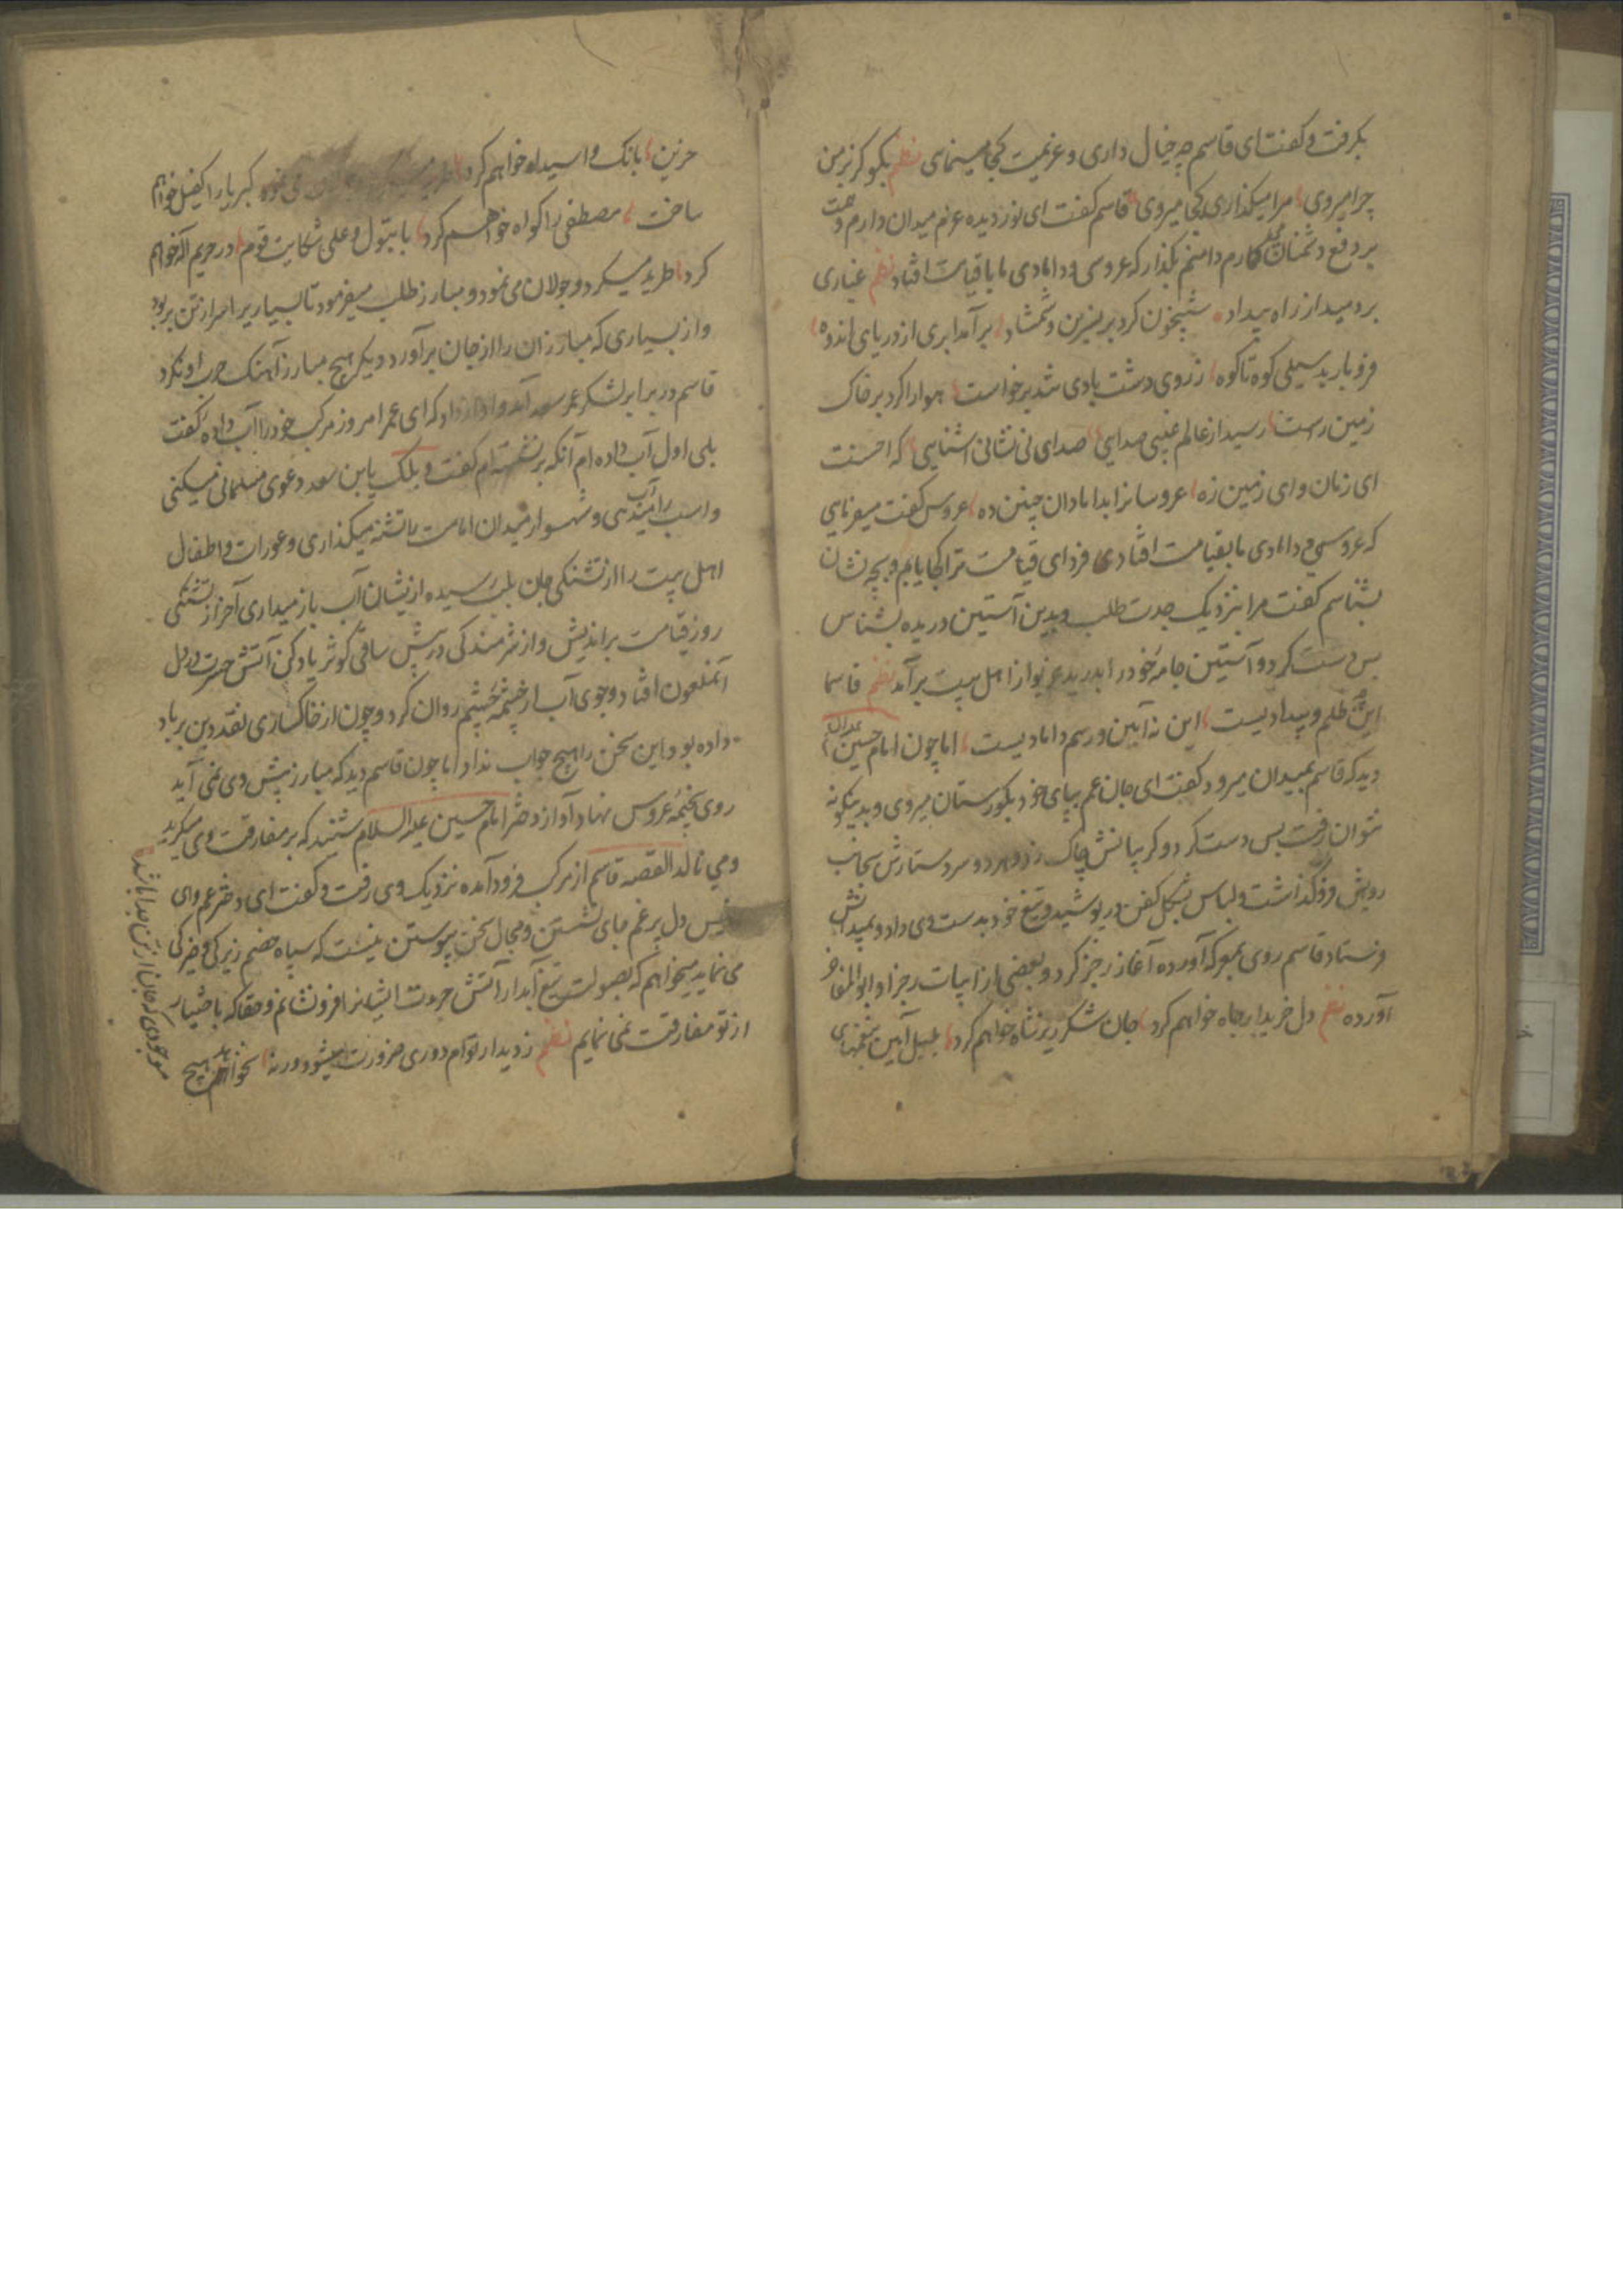 بکرفت و کفت ای قاسم چه خیال داری و عزیمت کجا مینمای نظم بکو کز بزمن
چرا میروی مرا میکذاری کجا میروی قاسم کفت ای نور دیده عزم میدان دارم و همت
بر دفع دشمنان میکارم دامنم بکذار که عروسی و دامادی ما با قیامت افتاد نظم غباری
بر دمید از راه بیداد شبیخون کرد بر نسرین و شمشاد بر آمد ابری از دریای اندوه
فرو بارید سیلی کوه تا کوه ز روی دشت بادی تند برخواست هوا را کرد بر خاک
زمین راست رسید از عالم غیبی صدایی صدای نی نشانی اشنایی که احسنت
ای زمان و ای زمین زه عروسانرا بدامادان چنین ده عروس کفت میفرمایی
که عروسی و دامادی ما بقیامت افتاد فردای قیامت ترا کجا یابم و بچه نشان
بشناسم کفت مرا بنزدیک جدت طلب و بدین آستین دریده بشناس
پس دست کرد و آستین جامه خود را بدرید غریو از اهل بیت برآمد نظم قاسما
این چه ظلم و بیدادیست این نه آیین و رسم دامادیست اما چون امام حسین
دید که قاسم بمیدان میرود کفت ای جان عم بپای خود بکورستان میروی و بدینکونه
نتوان رفت پس دست کرد و کریبانش چاک زد و هر دو سر دستارش بجانب
رویش فرو کذاشت و لباس بشکل کفن در پوشید و تیغ خود بدست وی داد و بمیدانش
فرستاد قاسم روی بمعرکه آورده آغاز رجز کرد و بعضی از ابیات رجز او ابو المفاخر
آورده نظم دل خریدار جاه خواهم کرد جان شکر ریز شاه خواهم کرد بلبل آیین بنغمهای
حزین بانک وا سیداه خواهم کرد کبریا را کفیل خواهم
ساخت مصطفی را کواه خواهم کرد با بتول و علی شکایت قوم در حریم آله خواهم
کرد طرید میکرد و جولان می نمود و مبارز طلب میفرمود تا بسیاریرا سر از تن بربود
و از بسیاری که مبارزان را از جان برآورد دیکر هیچ مبارز آهنک حرب او نکرد
قاسم در برابر لشکر عمر سعد آمد و آواز داد که ای عمر امروز مرکب خود را آب داده کفت
بلی اول آب داده ام آنکه بر نشسته ام کفت ویلک یابن سعد دعوی مسلمانی میکنی
و اسب را آب میدهی و شهسوار میدان امامت را تشنه میکذاری و عورات و اطفال
اهل بیت را از تشنکی جان بلب رسیده ازیشان آب باز میداری آخر از تشنکی
روز قیامت براندیش و از شرمندکی در پیش ساقی کوثر یاد کن آتش حسرت در دل
آنملعون افتاد و جوی آب از چشمه چشم روان کرد و چون از خاکساری نقد دین بر باد
داده بود این سخن را هیچ جواب نداد اما چون قاسم دید که مبارز پیش وی نمی آید
روی بخیمه عروس نهاد آواز دختر امام حسین علیه السلام شنید که بر مفارقت وی میکرید
و می نالد القصه قاسم از مرکب فرود آمده نزدیک وی رفت و کفت ای دختر عم وای
دل پر غم جای نشستن و مجال سخن پیوستن نیست که سپاه خصم زیرکی و خیرکی
می نماید میخواهم که بصولت تیغ آبدار آتش جرءت ایشانرا فرو نشانم و حقا که باختیار
از تو مفارقت نمی نمایم نظم ز دیدار توام دوری ضرورت میشود ورنه نخواهد هیچ
موجودی که جان از تن جدا باشد